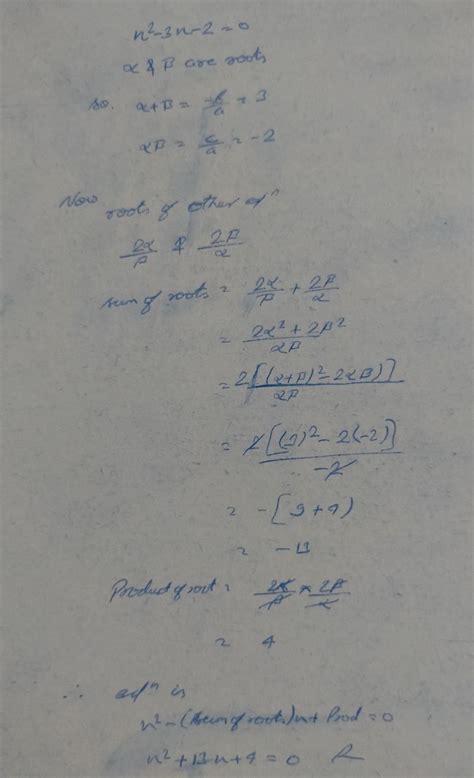 x²-3x-2=0
α & β are roots
so. α+β = -b/a = 3
αβ = c/a = -2
Now roots of other eqⁿ
2α/β & 2β/α
sum of roots = 2α/β + 2β/α
= 2α²+2β²/αβ
= 2[(α+β)²-2αβ)]/αβ
= 2[(3)²-2(-2)]/-2
= -[9+4)
= -13
Product of root = 2α/β × 2β/α
= 4
∴ eqⁿ is
x²-(sum of roots)x+Prod=0
x²+13x+4=0